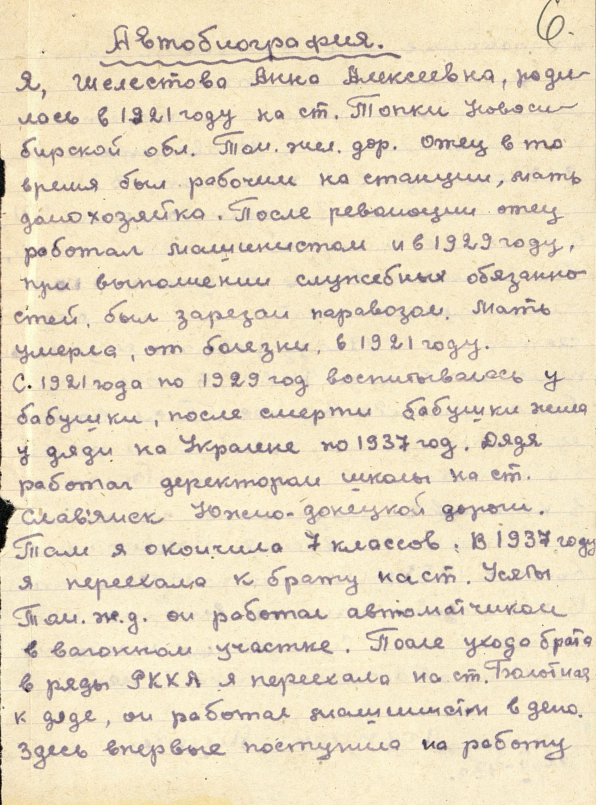 6.
Автобиография.
Я, Шелестова Анна Алексеевна, роди-
лась в 1921 году на ст. Топки Новоси-
бирской обл. Том. жел. дор. Отец в то
время был рабочим на станции, мать
домохозяйка. После революции отец
работал машинистом и в 1929 году,
при выполнении служебных обязанно-
стей, был зарезан паравозом. Мать
умерла, от болезни, в 1921 году.
С 1921 года по 1929 год воспитывалась у
бабушки, после смерти бабушки жила
у дяди на Украине по 1937 год. Дядя
работал деректором школы на ст.
Славянск Южно-донецкой дороги.
Там я окончила 7 классов. В 1937 году
я переехала к брату на ст. Усяты
Том. ж.д. он работал автоматчиком
в вагонном участке. После ухода брата
в ряды РККА я переехала на ст. Болотная
к дяде, он работал машинистом в депо.
Здесь впервые поступила на работу